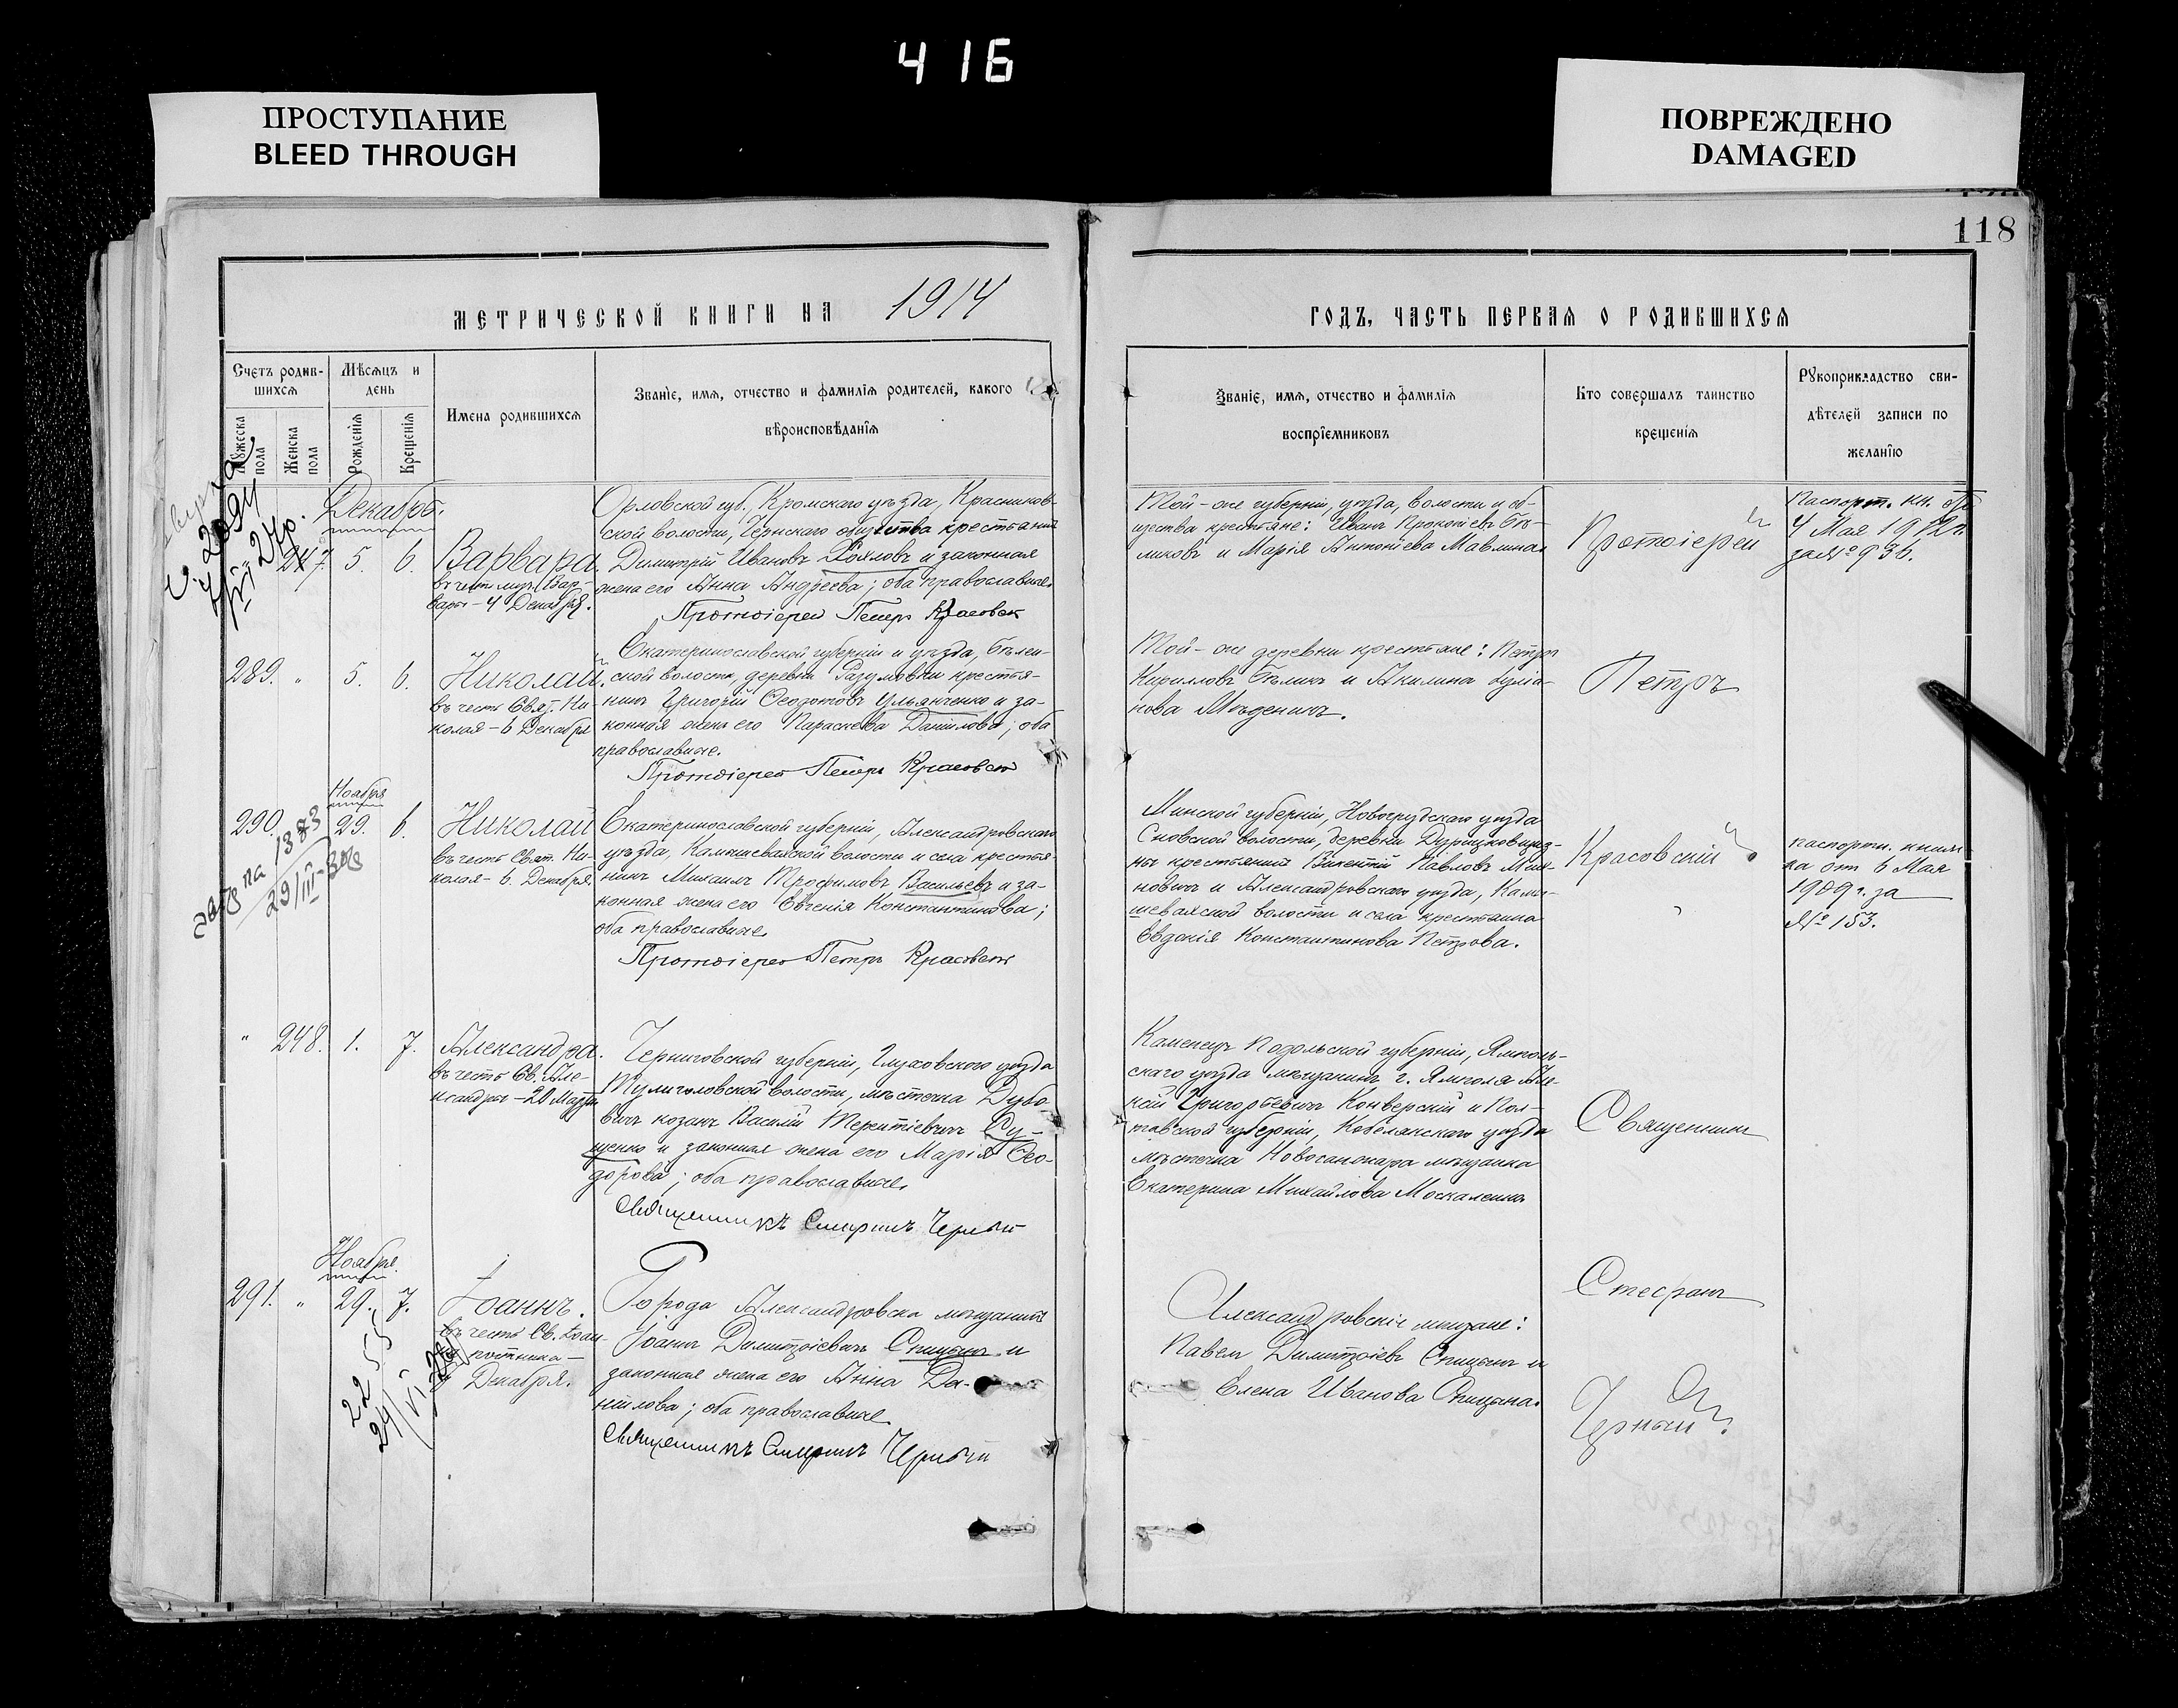 416
ПРОСТУПАНИЕ
BLEED THROUGH
ПОВРЕЖДЕНО
DAMAGED
118
МЕТРИЧЕСКОЙ КНИГИ НА 1914
ГОДЪ, ЧАСТЬ ПЕРВАЯ О РОДИВШИХСЯ
Счетъ родив-
шихся
Мужеска пола
Женска пола
Мѣсяцъ и
день
Рожденія
Крещенія
Имена родившихся
Званіе, имя, отчество и фамилія родителей, какого
вѣроисповѣданія
Званіе, имя, отчество и фамилія
воспріемниковъ
Кто совершалъ таинство
крещенія
Рукоприкладство сви-
дѣтелей записи по
желанію
Декабрь.
247. 5. 6.
Варвара
въ честь муч. Вар-
вары – 4 Декабря.
Орловской губ., Кромскаго уѣзда, Красников-
ской волости, общества крестьянинъ
Димитрій Ивановъ и законная
жена его Анна Андреева; оба православные
Протоіерей Петръ Красовск
Той-же губерніи, уѣзда, волости и об-
щества крестьяне: Иванъ Прокопіевъ Бѣ-
ликовъ и Марія Антоніева Мавлина
Протоіерей
Паспорт. кн. отъ
4 Мая 1912 г.
за № 936.
289. " 5. 6.
Николай.
въ честь Свят. Ни-
колая – 6 Декабря
Екатеринославской губерніи и уѣзда, Бѣлен-
ской волости, деревни Разумовки крестья-
нинъ Григорій Ѳеодотовъ Ульянченко и за-
конная жена его Параскева Данилова; оба
православные.
Протоіерей Петръ Красовскій
Той-же деревни крестьяне: Петръ
Кирилловъ Бѣликъ и Акилина Іуліа-
нова
Петръ
Ноября
290. 29. 6.
Николай
въ честь Свят. Ни-
колая – 6. Декабря.
Екатеринославской губерніи, Александровскаго
уѣзда, Камышевахской волости и села крестья-
нинъ Михаилъ Трофимовъ Васильевъ и за-
конная жена его Евгенія Константинова;
оба православные
Протоіерей Петръ Красовскій
Минской губерніи, Новогрудскаго уѣзда
Сновской волости, деревни
крестьянинъ Викентій Павловъ
и Александровскаго уѣзда, Камы-
шевахской волости и села крестьянка
Евдокія Константинова Петрова.
Красовскій
паспортн. книж
ка от 6 Мая
1909 г. за
№ 153.
" 248. 1. 7.
Александра.
въ честь Св. Але-
ксандры – 20 Марта
Черниговской губерніи, Глуховскаго уѣзда
Тулиголовской волости, мѣстечка Дубо-
вичъ козакъ Василій Терентіевичъ Су-
щенко и законная жена его Марія Ѳео-
дорова; оба православные.
Священникъ Черный
Каменецъ Подольской губерніи, Ямполь-
скаго уѣзда мѣщанинъ г. Ямполя Але-
ксій Григорьевичъ Конверскій и Пол-
тавской губерніи, Кобелякскаго уѣзда
мѣстечка Новосанжара мѣщанка
Екатерина Михайлова Москаленко
Священникъ
Ноября.
291. " 29. 7.
Іоаннъ.
въ честь Св. Іоан-
на постника –
Декабря.
Города Александровска мѣщанинъ
Іоаннъ Димитріевичъ Спицынъ и
законная жена его Анна Да-
ніилова; оба православные
Священникъ Черный
Александровскіе мѣщане:
Павелъ Димитріевъ Спицынъ и
Елена Иванова Спицына.
Стефанъ
Черный